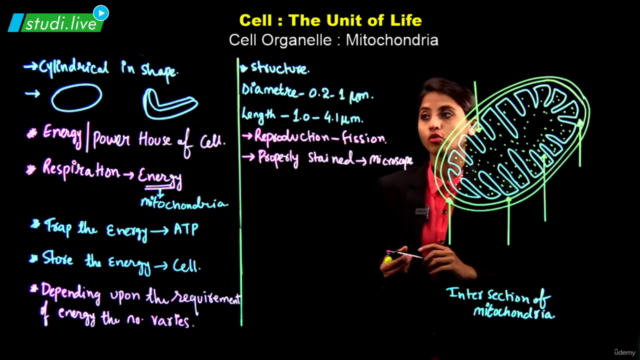 studi.live
Cell : The Unit of Life
Cell Organelle : Mitochondria
→Cylindrical in shape.
→
* Energy/Power House of Cell.
* Respiration → Energy
mitochondria
* Trap the Energy → ATP
* Store the Energy → Cell.
* Depending upon the requirement
of energy the no. varies.
* Structure.
Diametre - 0.2 - 1 μm.
Length - 1.0 - 4.1 μm.
→ Reproduction - fission.
→ Properly Stained → microscope
Intersection of
mitochondria
ûdemy